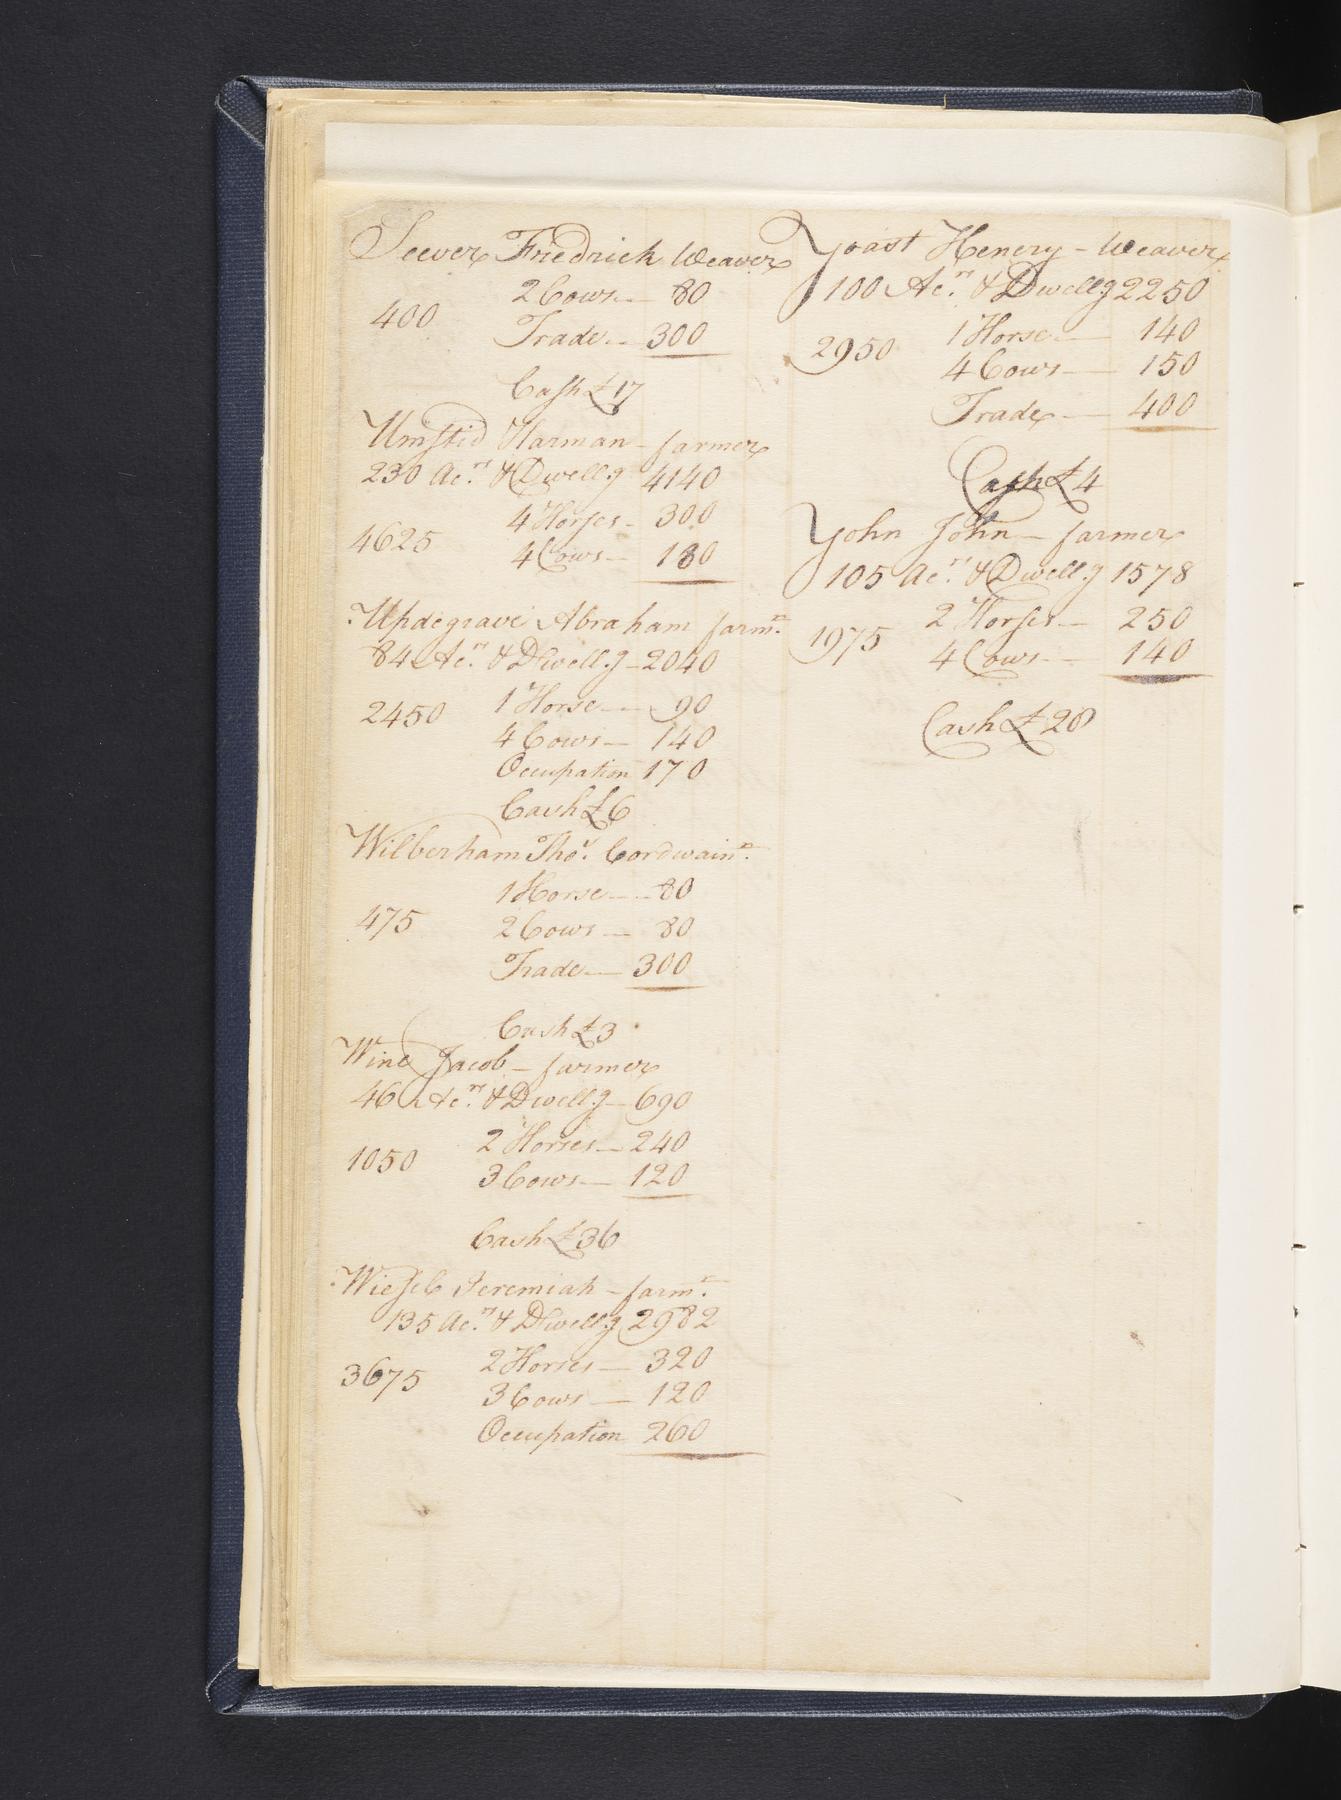 Seever Friedrich Weaver
2 Cows — 80
400
Trade — 300
Cash £17
Umstid Harman - farmer
230 Acrs & Dwell.g 4140
4 Horses - 300
4625
4 Cows — 180
Updegrave Abraham farmr
84 Acrs & Dwell.g - 2040
1 Horse — 90
2450
4 Cows — 140
Occupation 170
Cash £6
Wilberham Thos. Cordwainr
1 Horse — 80
475
2 Cows — 80
Trade — 300
Cash £3
Wine Jacob - farmer
46 Acrs & Dwell.g - 690
2 Horses — 240
1050
3 Cows — 120
Cash £36
Jeremiah - farmr
135 Acrs & Dwell.g 2982
2 Horses — 320
3675
3 Cows — 120
Occupation 260
Yoast Henery - Weaver
100 Acrs & Dwellg 2250
1 Horse — 140
2950
4 Cows — 150
Trade — 400
Cash £4
Yohn John - farmer
105 Acrs & Dwell.g 1578
2 Horses — 250
1975
4 Cows — 140
Cash £28